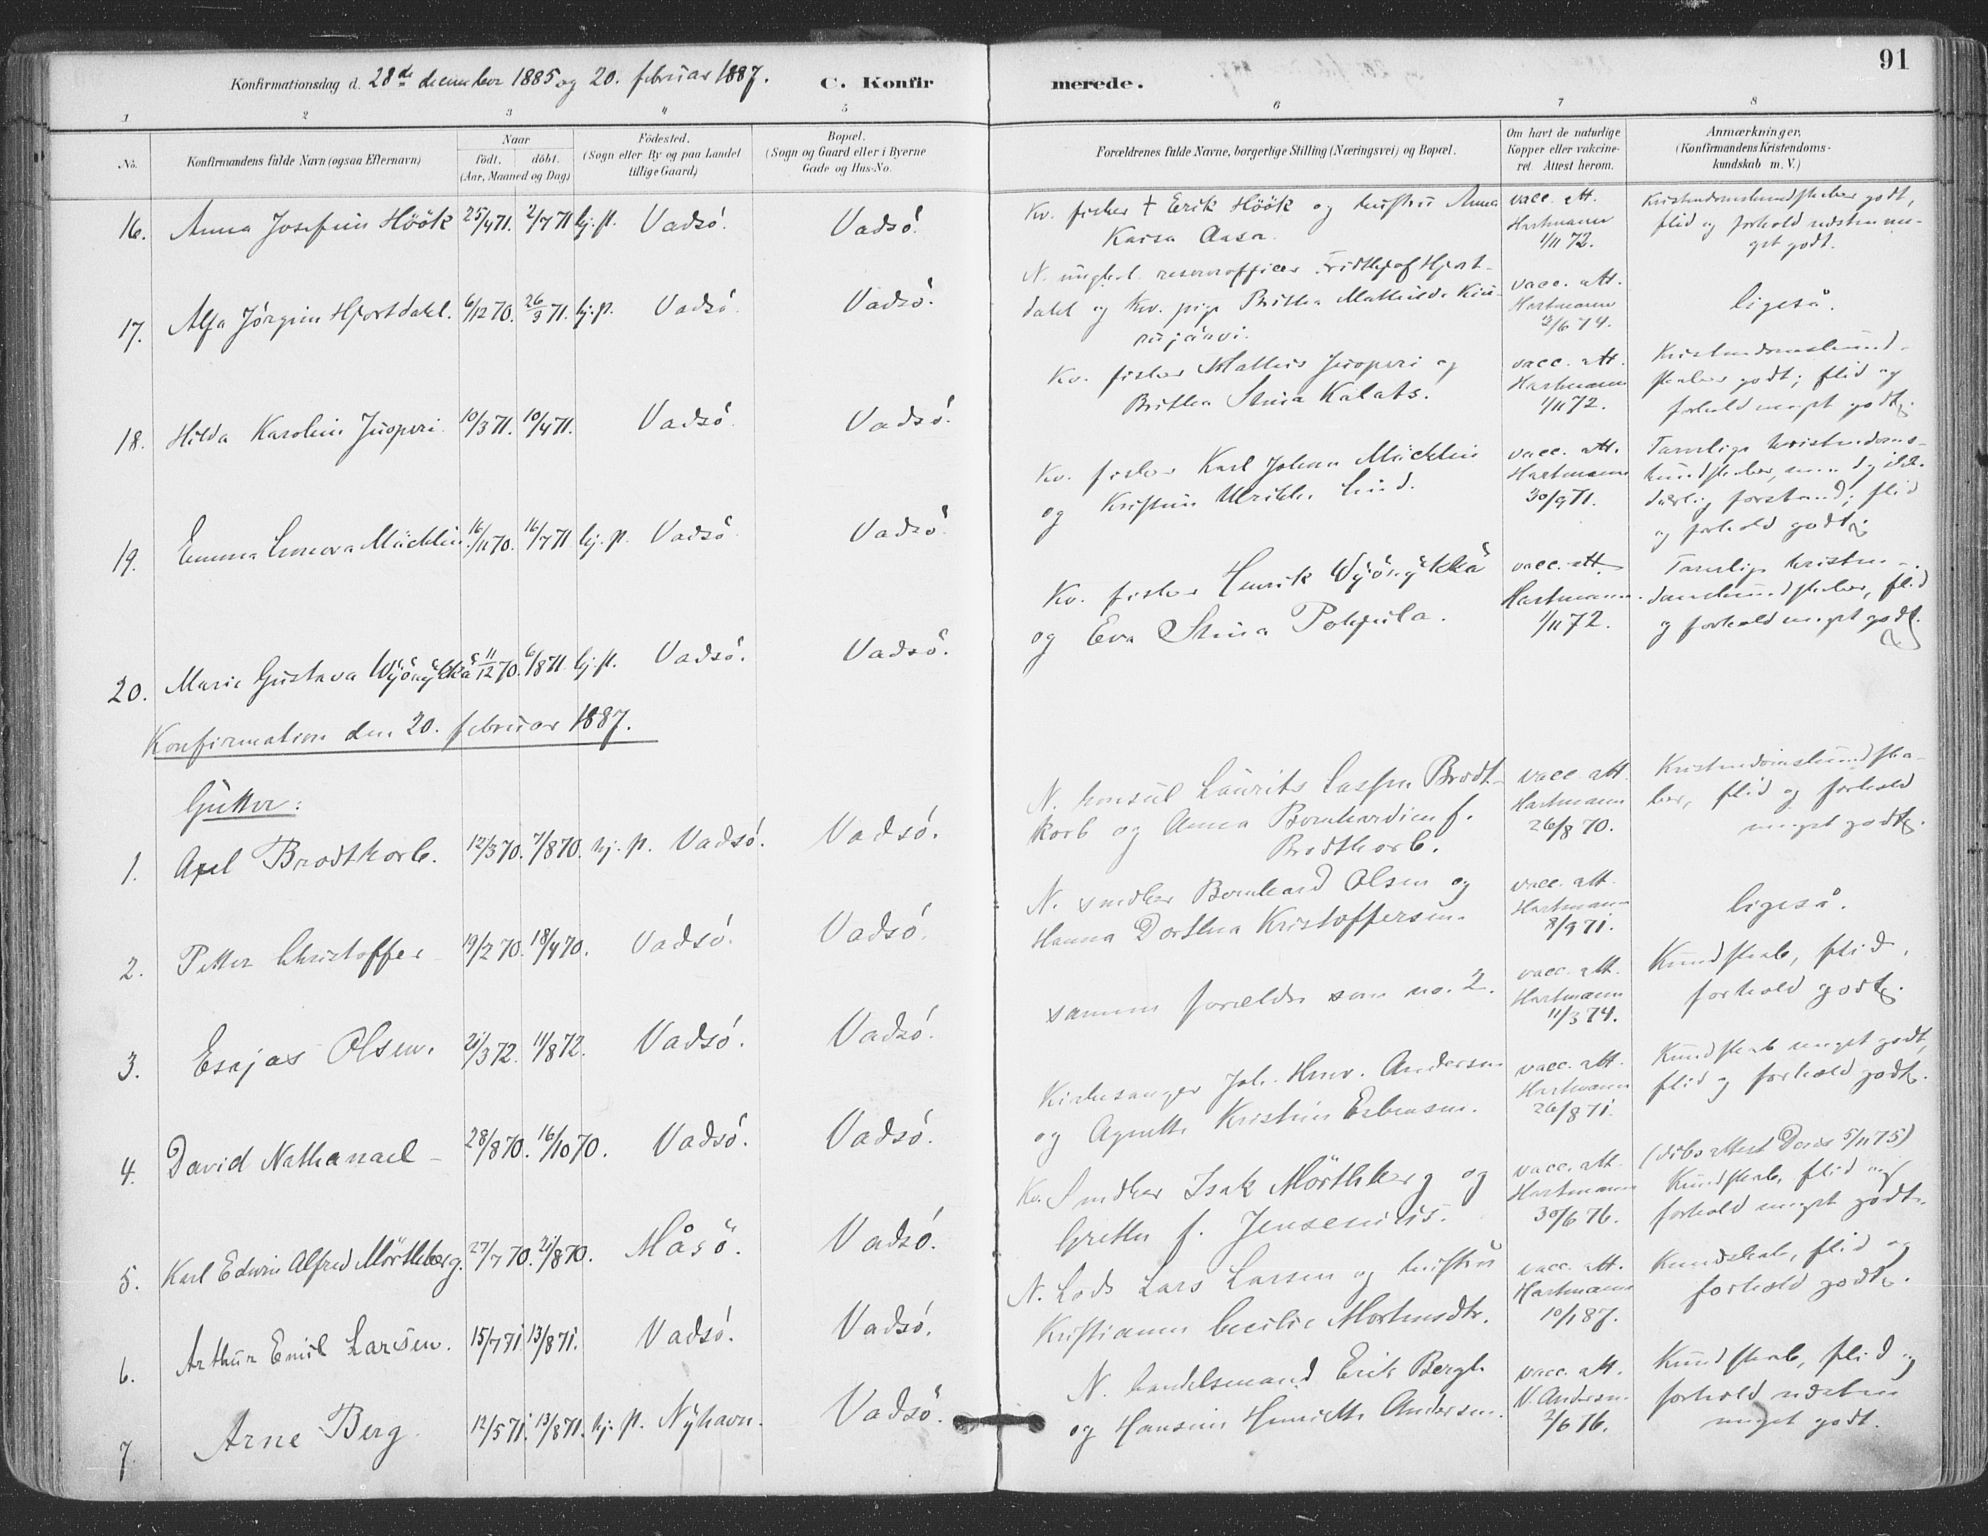 91
Konfirmationsdag d. 28de december 1885 og 20. februar 1887. C. Konfirmerede.
1 2 3 4 5 6 7 8
No. Konfirmandens fulde Navn (ogsaa Efternavn) Naar födt. döbt. (Aar, Maaned og Dag) Födested. (Sogn eller By og paa Landet tillige Gaard) Bopæl. (Sogn og Gaard eller i Byerne Gade og Hus-No. Forældrenes fulde Navne, borgerlige Stilling (Næringsvei) og Bopæl. Om havt de naturlige Kopper eller vakcineret. Attest herom. Anmærkninger, (Konfirmandens Kristendomskundskab m. V.)
16. Anna Josefine Höök 25/4 71. 2/7 71 hj. p. Vadsö. Vadsö. Kv. fisker † Erik Höök og hustru Anna
Kaisa Aasa. vacc. att. Hartmann 1/11 72. Kristendomskundskaber godt,
flid og forhold udmerket godt.
17. Alfa Jörgine Hjortdahl. 6/12 70. 26/3 71. hj. p. Vadsö. Vadsö. N. ungkarl reserveofficer Fridthjof Hjort-
dahl og Kv. pige Britha Mathilde Kin-
nujärvi. vacc. att. Hartmann 2/6 74. ligeså.
18. Hilda Karoline Juoperi 10/3 71. 10/4 71. Vadsö. Vadsö. Kv. fisker Mathis Juoperi og
Britha Stina Kalats. vacc. att. Hartmann 1/11 72. Kristendomskund-
skaber godt; flid og
forhold meget godt.
19. Emma Lenova Mäcklin 16/11 70. 16/7 71 hj. p. Vadsö. Vadsö. Kv. fisker Karl Johan Mäcklin
og Kristine Ulrikke Lind. vacc. att. Hartmann 30/9 71. Tarvlige kristendoms-
kundskaber,
dårlig forstand; flid
og forhold godt.
20. Marie Gustava Wyönykkä 11/12 70. 6/8 71. hj. p. Vadsö. Vadsö. Kv. fisker Henrik Wyönykkä
og Eva Stina Pohjula. vacc. att. Hartmann. 1/11 72. Tarvlige kristen-
domskundskaber, flid
og forhold meget godt.
Konfirmation den 20. februar 1887.
Gutter:
1. Axel Brodtkorb. 12/3 70. 7/8 70. hj. p. Vadsö. Vadsö. N. konsul Laurits Lassen Brodt-
korb og Anna Bernhardine f.
Brodtkorb. vacc att. Hartmann 26/8 70. Kristendomskundska-
ber, flid og forhold
meget godt.
2. Petter Christoffer 19/2 70. 18/4 70. Vadsö. Vadsö. N. snedker Bernhard Olsen og
Hanna Dorthea Kristoffersen. vacc. att. Hartmann 8/9 71. ligeså.
3. Esajas Olsen. 21/3 72. 11/8 72. Vadsö. Vadsö. samme forældre som no. 2. vacc. att. Hartmann 11/3 74. Kundskab, flid,
forhold godt.
4. David Nathanael – 28/8 70. 16/10 70. Vadsö. Vadsö. Kirkesanger Joh. Henr. Andersen
og Agnethe Kristine Esbensen. vacc. att. Hartmann 26/8 71. Kundskab meget godt,
flid og forhold godt.
5. Karl Edvin Alfred Mörthberg. 27/7 70. 21/8 70. Måsö. Vadsö. Kv. Snedker Isak Mörthberg og
Grethe f. Jensenius. vacc. att. Hartmann 30/6 76. (dåbsattest 5/11 75)
Kundskab, flid og
forhold meget godt.
6. Arthur Emil Larsen. 15/7 71. 13/8 71. Vadsö. Vadsö. N. Lods Lars Larsen og hustru
Kristianna Cecilie Mortensdtr. vacc. att. Hartmann 10/1 87. Kundskab, flid og
forhold godt.
7. Arne Berg. 12/5 71. 13/8 71. hj. p. Nyhavn. Vadsö. N. handelsmand Erik Bergh
og Hansine Henriette Andersen. vacc. att. V. Andersen 2/6 76. Kundskab, flid og
forhold
meget godt.